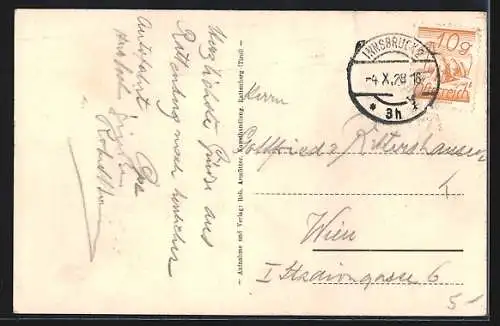 Herzlichste Grüße aus
Rattenberg nach herrlicher
Autofahrt
Aufnahme und Verlag: Rob. Armütter, Kunsthandlung, Rattenberg (Tirol)
INNSBRUCK 2
-4.X.28 16
* 3h *
10g
Österreich
Herrn
Gottfried Rittershausen
Wien
I Stadiongasse 6
5-